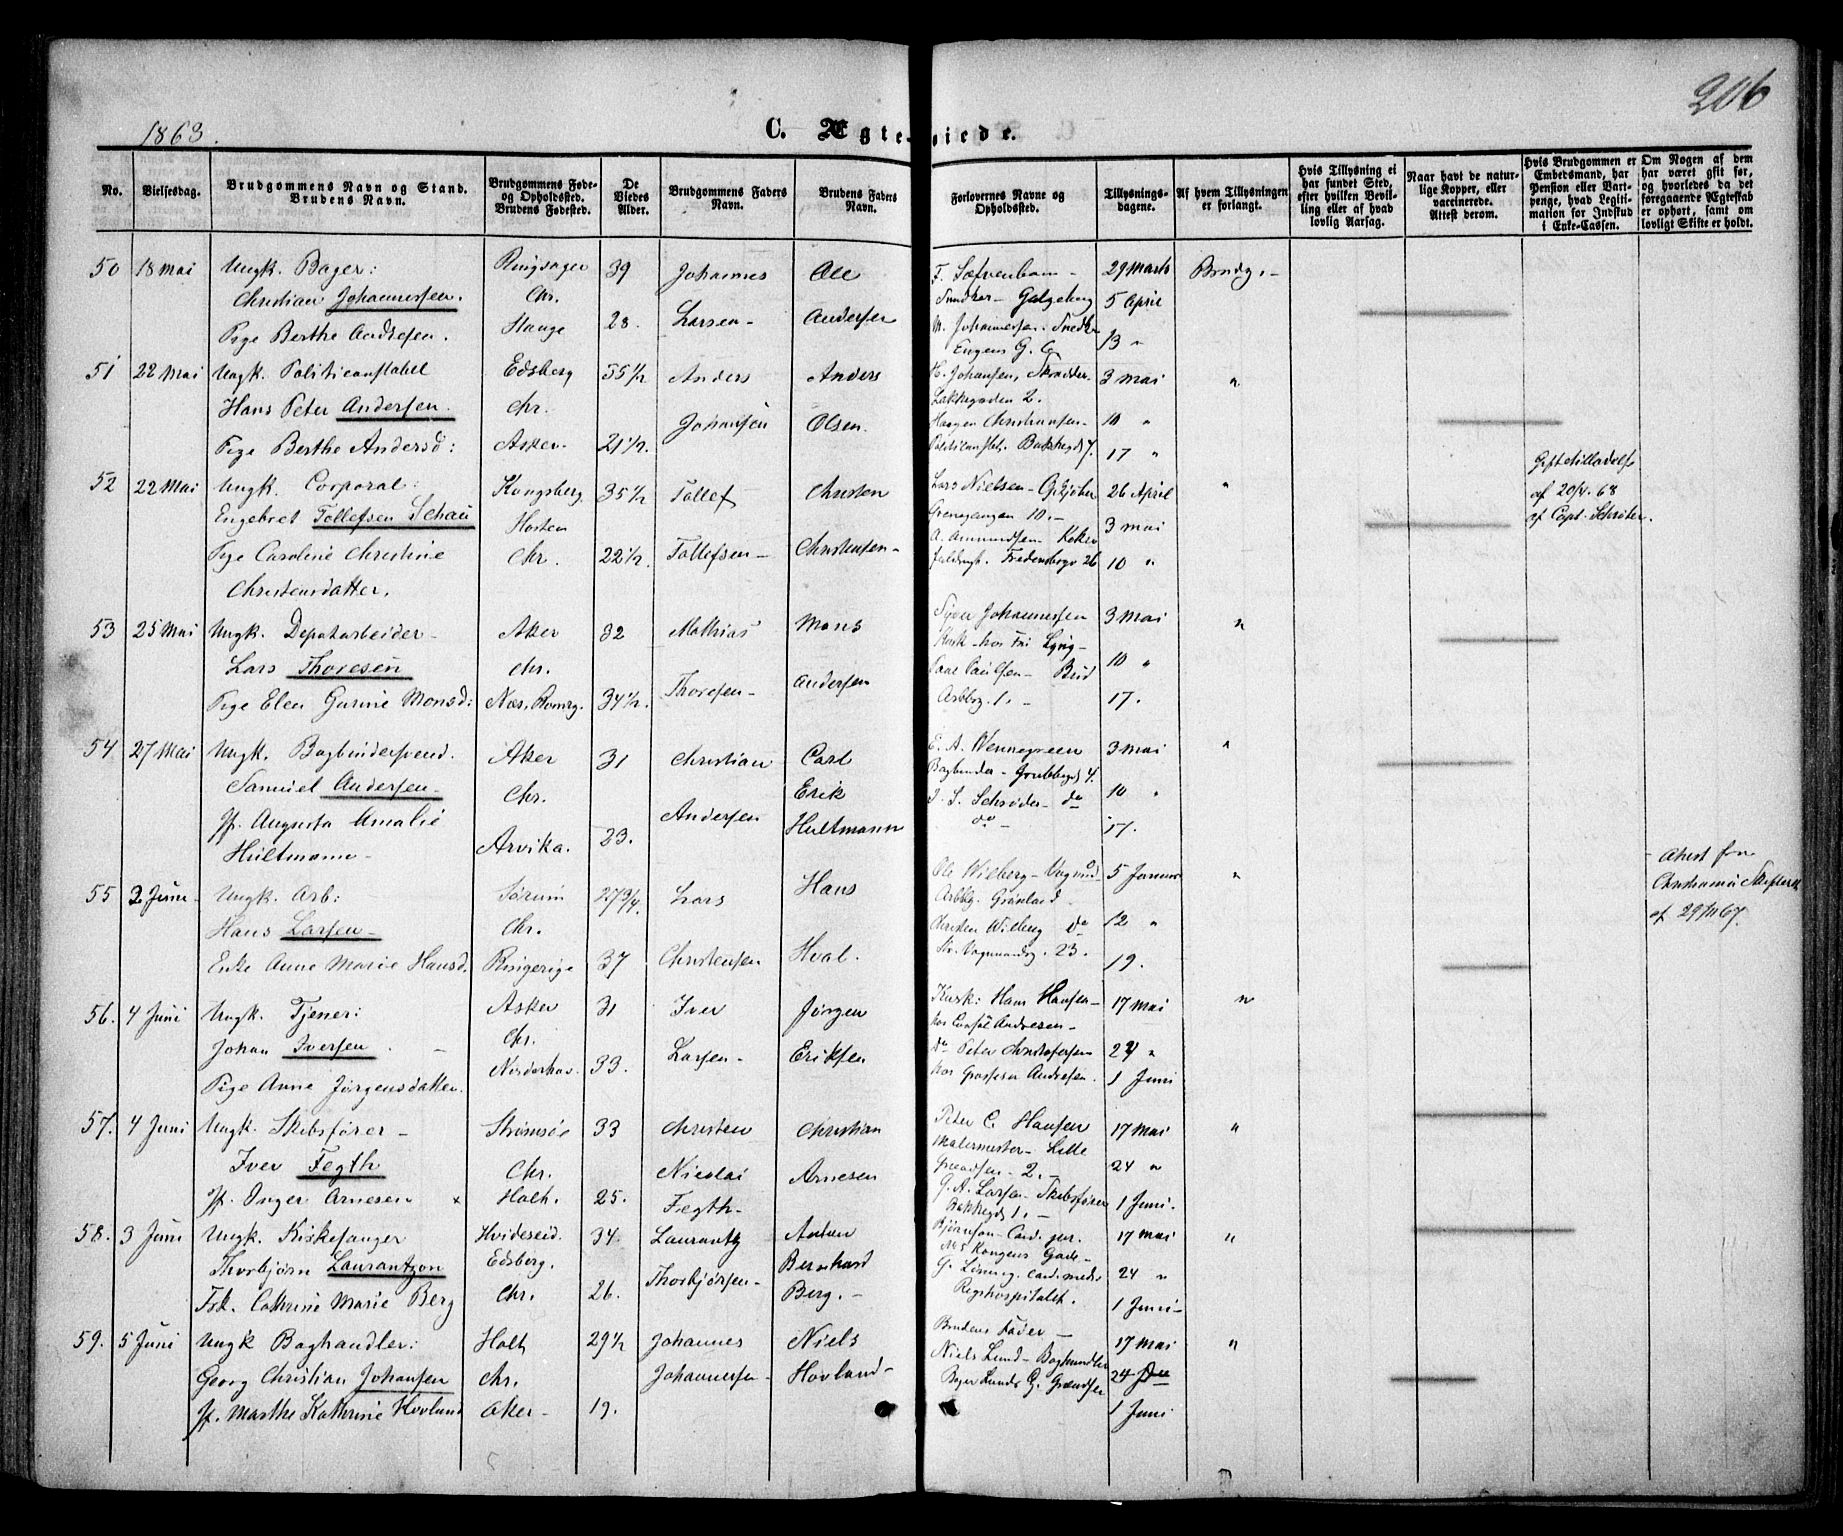 206
1863.
C. Ægteviede.
No.
Vielsesdag.
Brudgommens Navn og Stand.
Brudens Navn.
Brudgommens Føde-
og Opholdssted.
Brudens Fødested.
De
Viedes
Alder.
Brudgommens Faders
Navn.
Brudens Faders
Navn.
Forlovernes Navne og
Opholdssted.
Tillysnings-
dagene.
Af hvem Tillysningen
er forlangt.
Hvis Tillysning ei
har fundet Sted,
efter hvilken Bevil-
ling eller af hvad
lovlig Aarsag.
Naar havt de natur-
lige Kopper, eller
vaccinerede.
Attest derom.
Hvis Brudgommen er
Embedsmand, har
Pension eller Vart-
penge, hvad Legiti-
mation for Indskud
i Enke-Cassen.
Om Nogen af dem
har været gift før,
og hvorledes da det
foregaaende Ægteskab
er ophørt, samt om
lovligt Skifte er holdt.
50 18 Mai Ungk. Bager: Ringsager 39 Johannes Ole 29 Marts Brudg.
Christian Johannessen. Chr. 5 April
Pige Berthe Andersen. Stange 28. Larsen Andersen 13 "
51 22 Mai Ungk. Politiconstabel Edsberg 35 1/2 Anders Anders H. Johansen, Skrædder 3 Mai "
Hans Peter Andersen. Chr. Johansen Olsen. Lakkegaden 2. 10 "
Pige Berthe Andersd: Asker 21 1/2. 17 "
52 22 Mai Ungk. Corporal: Kongsberg 35 1/2 Tollef Christen Lars Nielsen 26 April "
Engebret Tollefsen Schau Horten Grønnegangen 10. 3 Mai
Pige Caroline Christine Chr. 22 1/2. Tollefsen Christensen A. Amundsen Fredensborgv 26 10 "
Christensdatter.
Giftetilladelse
af 20/4. 68
af Capt. Schrøter.
53 25 Mai Ungk. Depotarbeider Aker 32 Mathias Mons Syver Johannessen 3 Mai "
Lars Thoresen Chr. Kusk hos 10 "
Pige Elen Gurine Monsd: Næs, Romrg. 34 1/2. Thoresen Andersen Arbbg. 1. 17.
54 27 Mai Ungk. Bogbindersvend. Aker 31 Christian Carl E. A. Wennegreen 3 Mai "
Samuel Andersen Chr. Erik Bogbinder Grubbegd 4. 10 "
Jf. Augusta Amalie Arvika. 23. Andersen Hultmann Schrøder do 17.
Hultmann do
55 2 Juni Ungk. Arb: Sørum 27 3/4. Lars Hans Ole Wiberg 5 Januar "
Hans Larsen Chr. Arbbg. Grønland 12 "
Enke Anne Marie Hansd. Ringerige 37 Christensen Hval. Christen Wiberg do 19.
Str. Vognmandsg. 23.
Attest fra
Christiania Skifteret
af 29/11 67.
56. 4 Juni Ungk. Tjener: Asker 31 Iver Jørgen Kusk: Hans Hansen 17 Mai "
Johan Iversen. Chr. hos Consul Andresen
Pige Anne Jørgensdatter. Norderhov. 33. Larsen Eriksen do Peter Christofersen 24 "
hos Grosserer Andresen. 1 Juni
57. 4 Juni Ungk. Skibsfører Strømsøe 33 Christen Christian Peter C. Hansen 17 Mai "
Iver Fegth Chr. Nicolai Arnesen Malermester Lille 24 "
Jf. Inger Arnesen x Holt. 25. Fegth Grændsen 2.
G. A. Larsen Skibsfører 1 Juni.
Bakkegd 1.
58. 3 Juni Ungk. Kirkesanger Hvideseid. 34. Laurantz Anton Bjørnson Cand. jur. 17 Mai "
Thorbjørn Laurantzon Edsberg. Bernhard No 5 Kongens Gade 24 "
Frk. Cathrine Marie Berg Chr. 26. Thorbjørsen Berg. cand. med. 1 Juni
Rigshospitalet.
59. 5 Juni Ungk Boghandler: Holt 29 1/2 Johannes Niels Brudens Fader 17 Mai "
Georg Christian Johansen Chr. Johannessen Hovland Niels Lund Boghandler 24
Jf. Marthe Kathrine Hovland Aker 19. 1 Juni